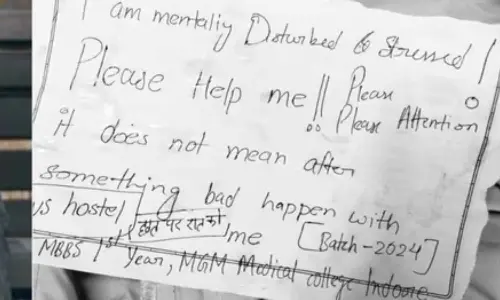 I am mentally Disturbed & Stressed !
Please Help me !! Please
Please Attention
it does not mean after
something bad happen with
us hostel छत पर रात को me [Batch-2024]
MBBS 1st Year, MGM Medical college Indore